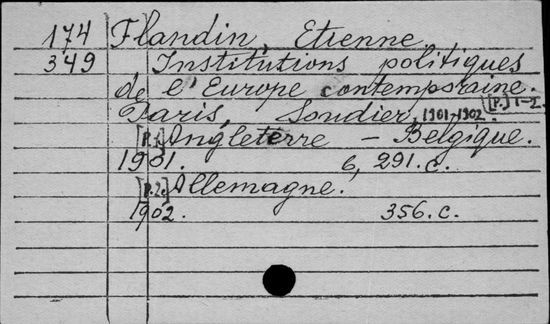 174 Flandin, Etienne
349 Institutions politiques
de l'Europe contemporaine.
[P.] 1-2.
Paris, Soudier, 1901-1902.
[P. 1.] Angleterre - Belgique.
1901. 6, 291. c.
[P. 2.] Allemagne.
1902. 356. c.